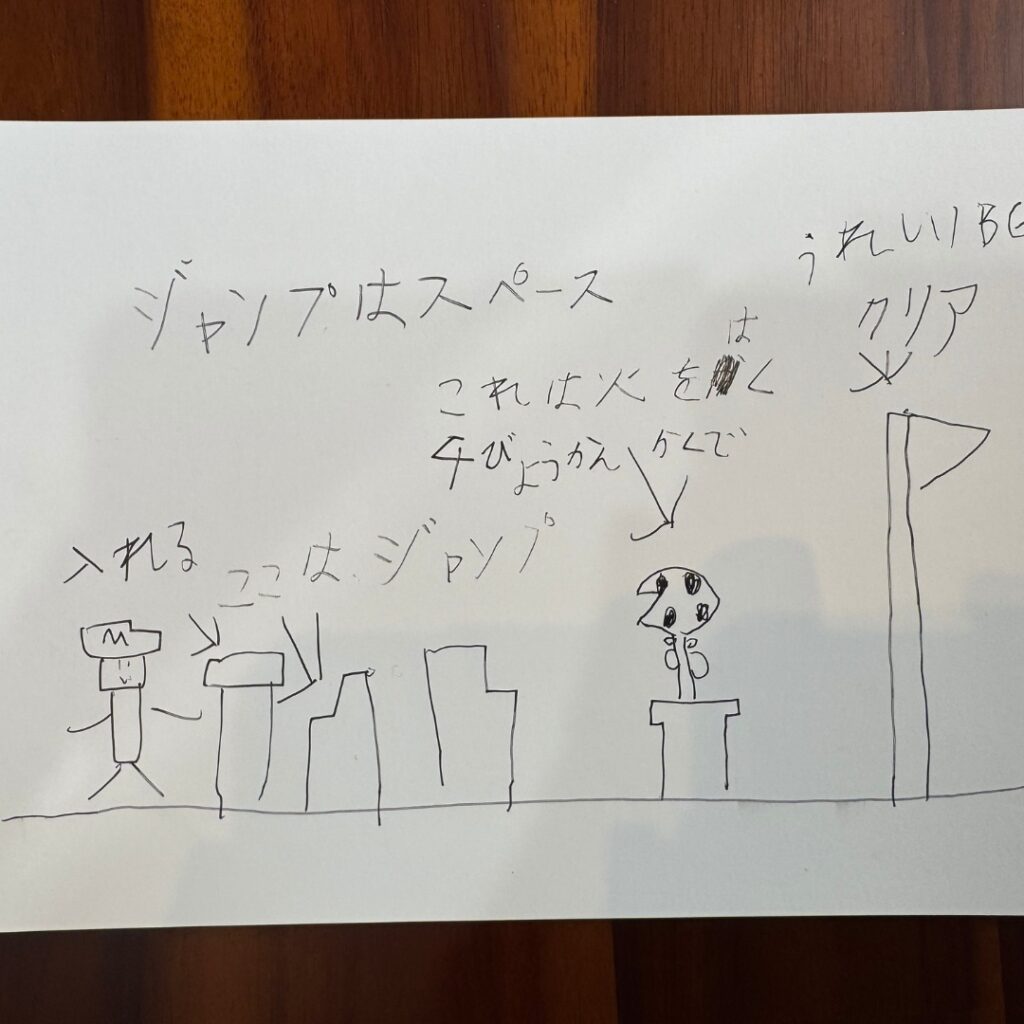 うれしい BG
クリア
ジャンプはスペース
は
これは火をく
4びょうかんかくで
入れる
ここは、ジャンプ
M